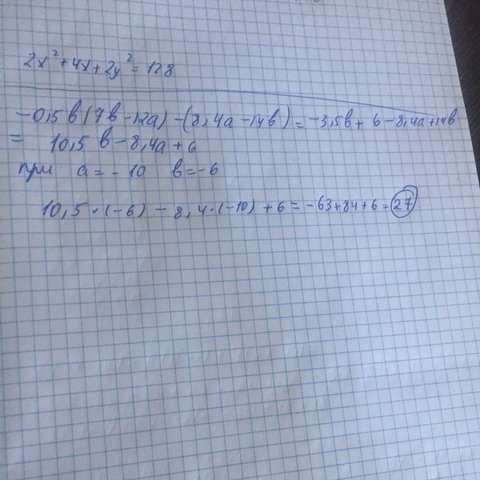 2x² + 4x + 2y² = 128
-0,5в(7в-12a) - (8,4a-14в) = -3,5в + 6 - 8,4a + 14в
= 10,5 в - 8,4a + 6
при a = -10 в = -6
10,5·(-6) - 8,4·(-10) + 6 = -63 + 84 + 6 = 27